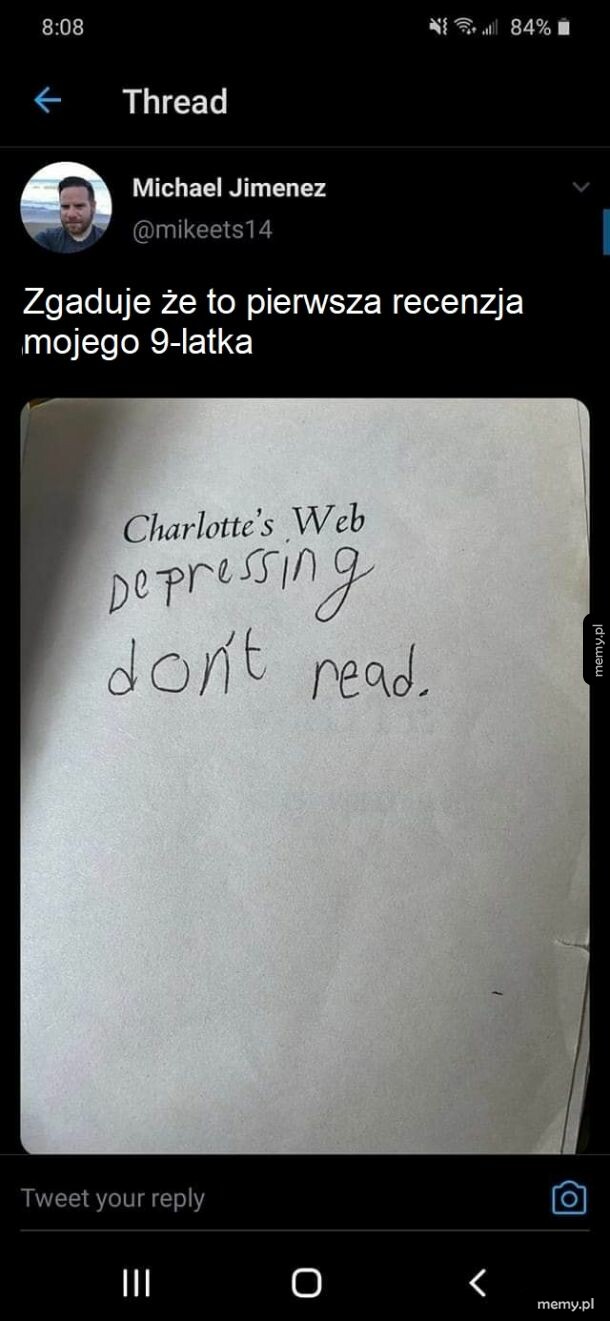 8:08 84%
Thread
Michael Jimenez
@mikeets14
Zgaduje że to pierwsza recenzja
mojego 9-latka
Charlotte's Web
Depressing
don't read.
memy.pl
Tweet your reply
memy.pl